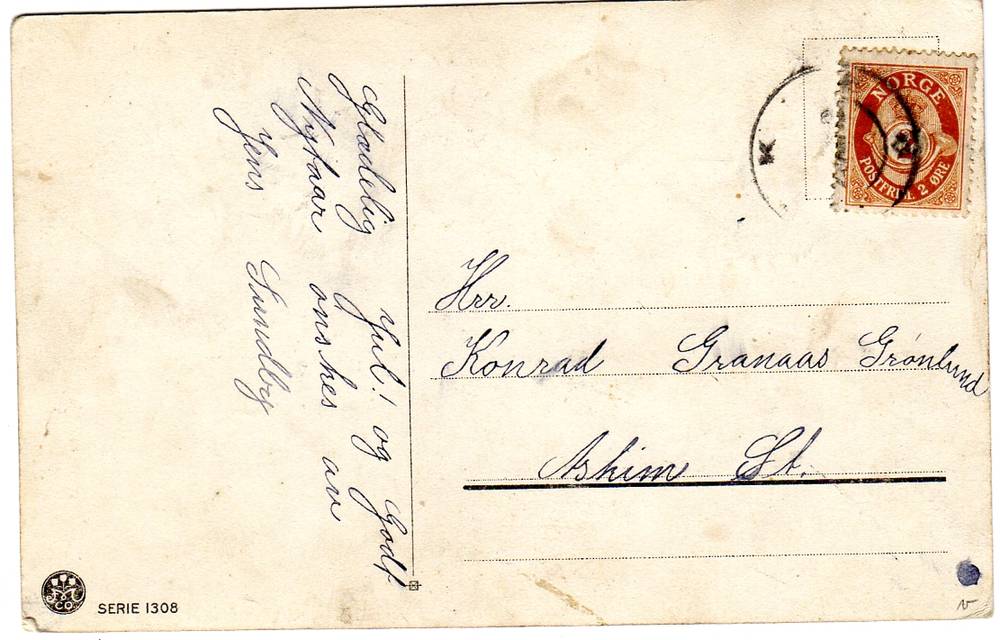 Glædelig Jul! og Godt
Nytaar ønskes av
Jens Sundby
NORGE
POSTFRIM. 2 ØRE
K
Hrr.
Konrad Granaas Grønlund
Askim St.
CO.
SERIE 1308